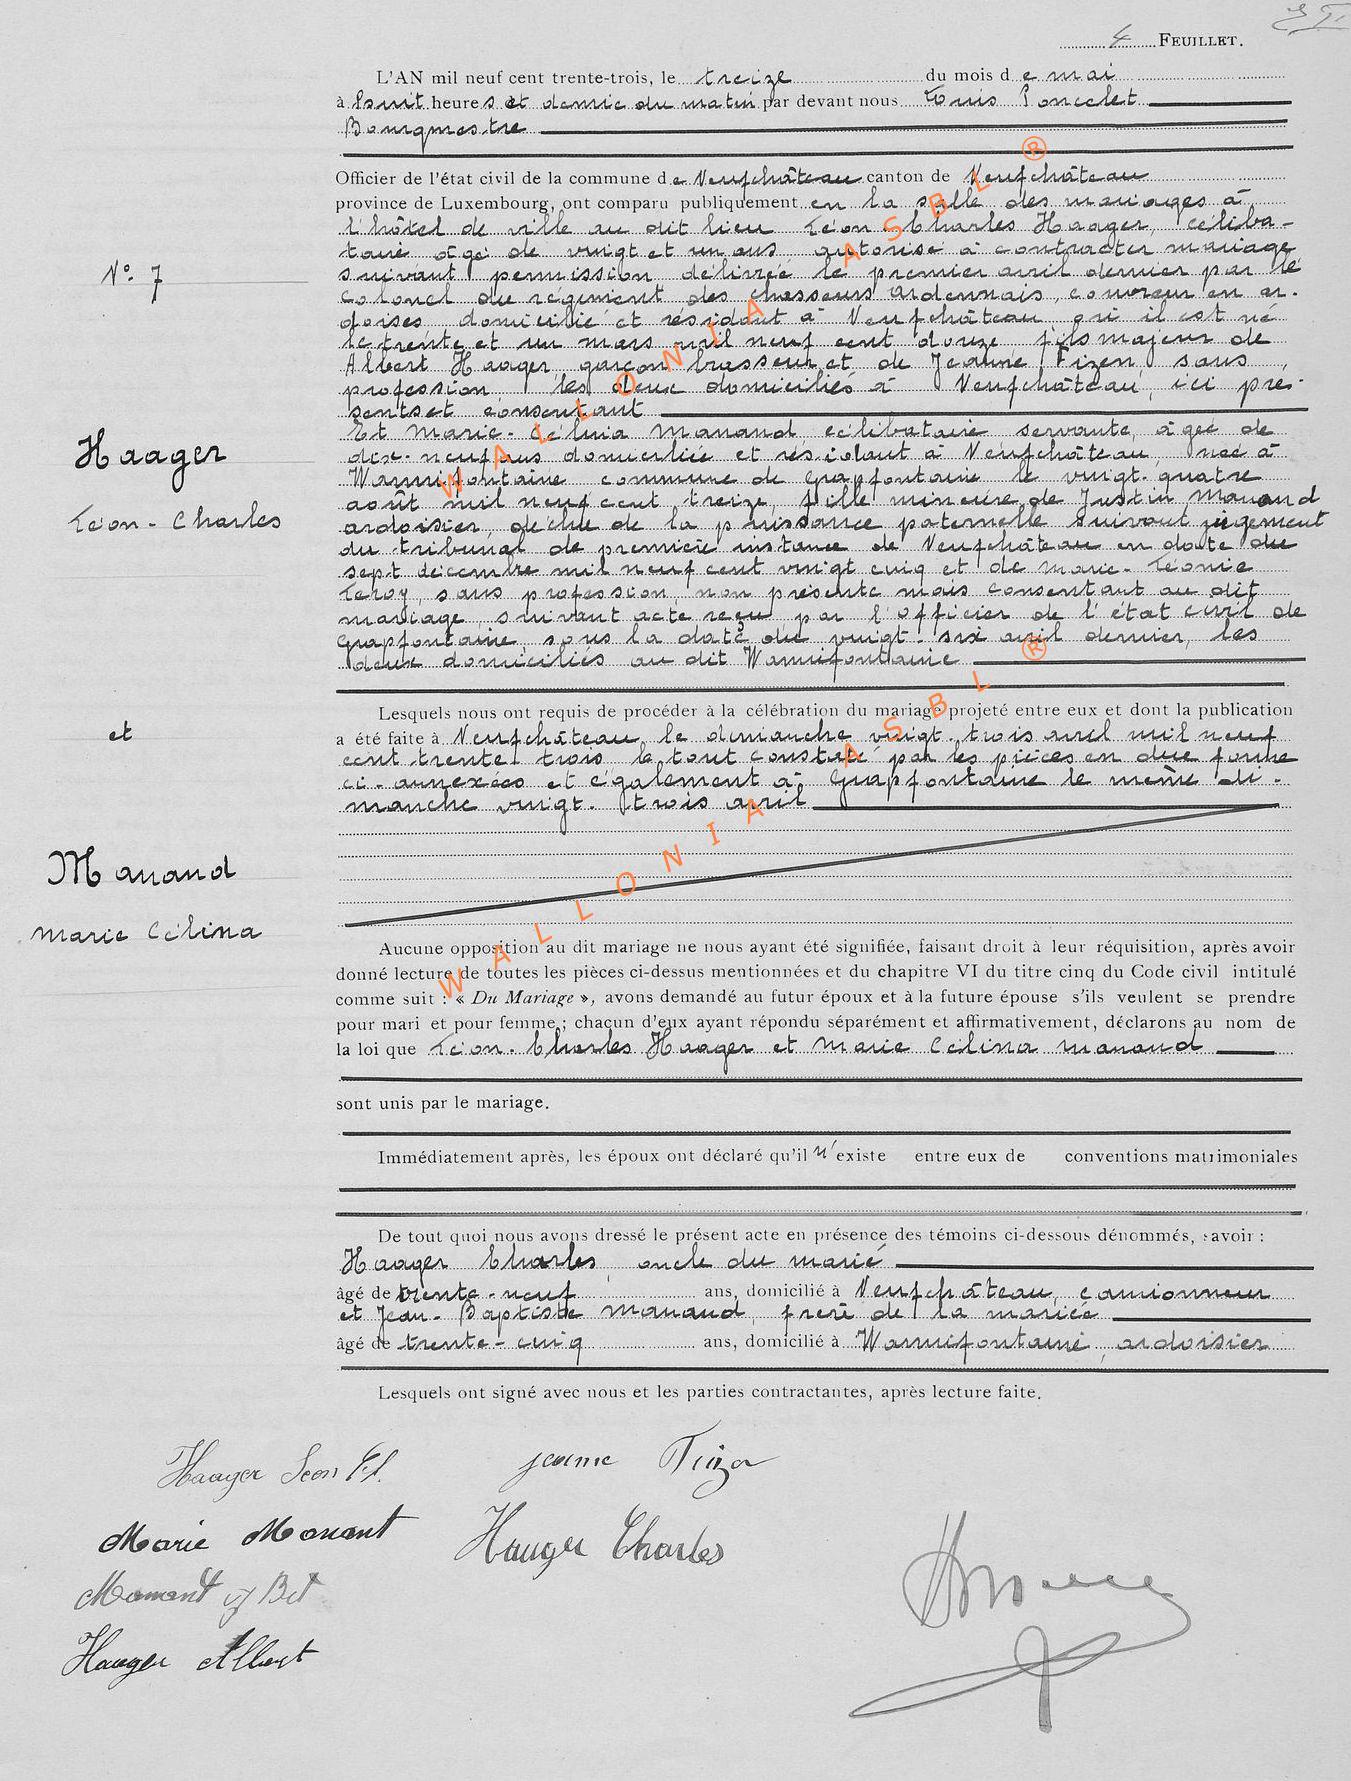 4 FEUILLET.
L'AN mil neuf cent trente-trois, le treize du mois de mai
à huit heures et demie du matin par devant nous Louis Poncelet
Bourgmestre
Officier de l'état civil de la commune de Neufchâteau canton de Neufchâteau
province de Luxembourg, ont comparu publiquement en la salle des mariages à
l'hôtel de ville au dit lieu Léon-Charles Haager, céliba-
taire âgé de vingt et un ans, autorisé à contracter mariage
suivant permission délivrée le premier avril dernier par le
Colonel du régiment des chasseurs ardennais, couvreur en ar-
doises, domicilié et résidant à Neufchâteau, où il est né
le trente et un mars mil neuf cent douze, fils majeur de
Albert Haager, garçon brasseur et de Jeanne Fizen sans
profession, les deux domiciliés à Neufchâteau, ici pré-
sents et consentant
Et Marie-Célina Manand, célibataire servante, âgée de
dix-neuf ans domiciliée et résidant à Neufchâteau, née à
Warmifontaine commune de Grapfontaine le vingt-quatre
août mil neuf cent treize, fille mineure de Justin Manand
ardoisier, déchu de la puissance paternelle suivant jugement
du tribunal de première instance de Neufchâteau en date du
sept décembre mil neuf cent vingt cinq et de Marie-Léonie
Leroy, sans profession, non présente mais consentant au dit
mariage, suivant acte reçu par l'officier de l'état civil de
Grapfontaine, sous la date du vingt-six avril dernier, les
deux domiciliés au dit Warmifontaine
Lesquels nous ont requis de procéder à la célébration du mariage projeté entre eux et dont la publication
a été faite à Neufchâteau le dimanche vingt-trois avril mil neuf
cent trente trois le tout constaté par les pièces en due forme
ci-annexées et également à Grapfontaine le même di-
manche vingt-trois avril
Aucune opposition au dit mariage ne nous ayant été signifiée, faisant droit à leur réquisition, après avoir
donné lecture de toutes les pièces ci-dessus mentionnées et du chapitre VI du titre cinq du Code civil intitulé
comme suit : « Du Mariage », avons demandé au futur époux et à la future épouse s'ils veulent se prendre
pour mari et pour femme ; chacun d'eux ayant répondu séparément et affirmativement, déclarons au nom de
la loi que Léon-Charles Haager et Marie Célina Manand
sont unis par le mariage.
Immédiatement après, les époux ont déclaré qu'il n'existe entre eux de conventions matrimoniales
De tout quoi nous avons dressé le présent acte en présence des témoins ci-dessous dénommés, savoir :
Haager Charles, oncle du marié
âgé de trente-neuf ans, domicilié à Neufchâteau, camionneur
et Jean-Baptiste Manand, frère de la mariée
âgé de trente-cinq ans, domicilié à Warmifontaine, ardoisier
Lesquels ont signé avec nous et les parties contractantes, après lecture faite.
N° 7
Haager
Léon-Charles
et
Manand
Marie Célina
Haager Léon
Jeanne
Marie Manant
Haager Charles
Manant
Haager Albert
WALLONIA ASBL ®
WALLONIA ASBL ®